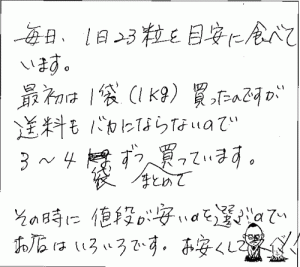 毎日、1日23粒を目安に食べて
います。
最初は1袋(1kg)買ったのですが
送料もバカにならないので
3〜4袋ずつまとめて買っています。
その時に値段が安いのを選ぶので
お店はいろいろです。お安くして